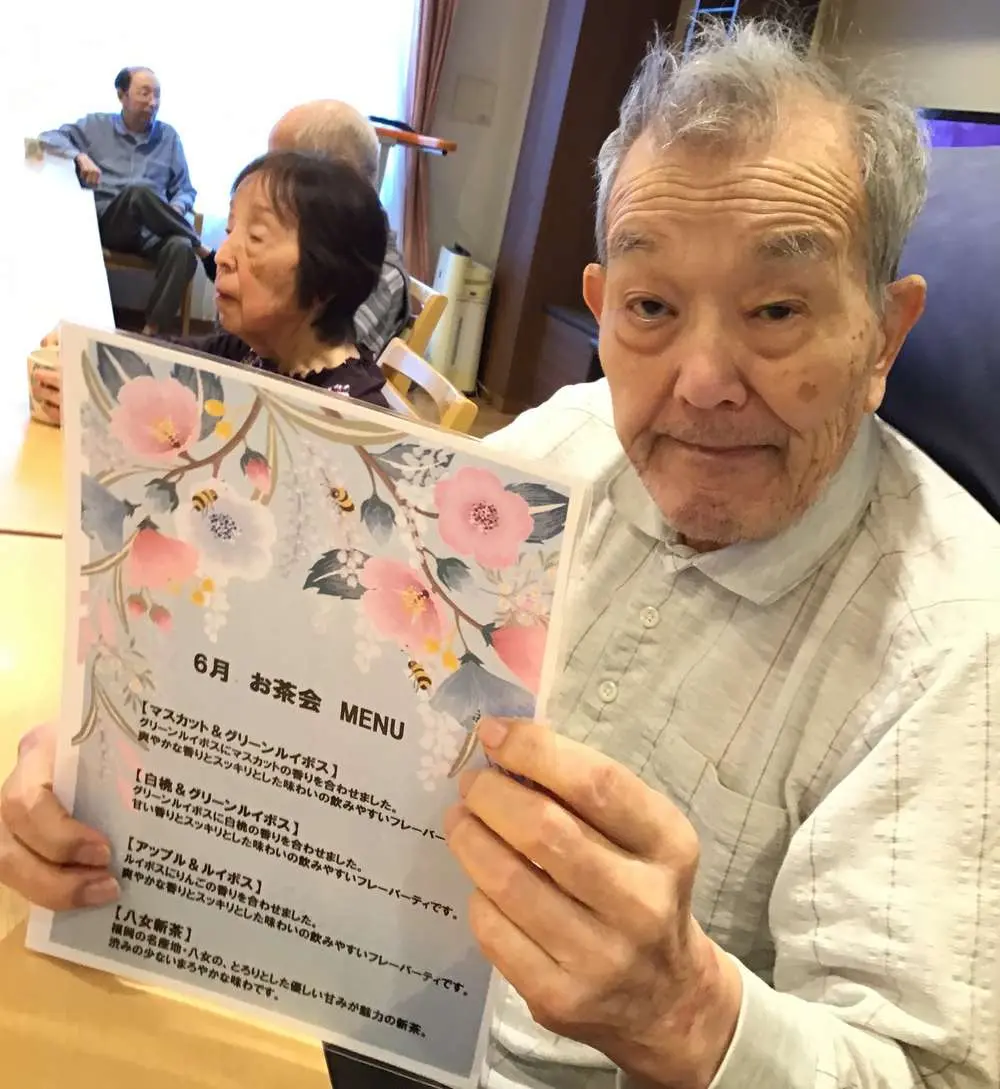 6月 お茶会 MENU
【マスカット＆グリーンルイボス】
グリーンルイボスにマスカットの香りを合わせました。
爽やかな香りとスッキリとした味わいの飲みやすいフレーバー
【白桃＆グリーンルイボス】
グリーンルイボスに白桃の香りを合わせました。
甘い香りとスッキリとした味わいの飲みやすいフレーバーティです。
【アップル＆ルイボス】
ルイボスにりんごの香りを合わせました。
爽やかな香りとスッキリとした味わいの飲みやすいフレーバーティです。
【八女新茶】
福岡の名産地・八女の、とろりとした優しい甘みが魅力の新茶。
渋みの少ないまろやかな味わです。